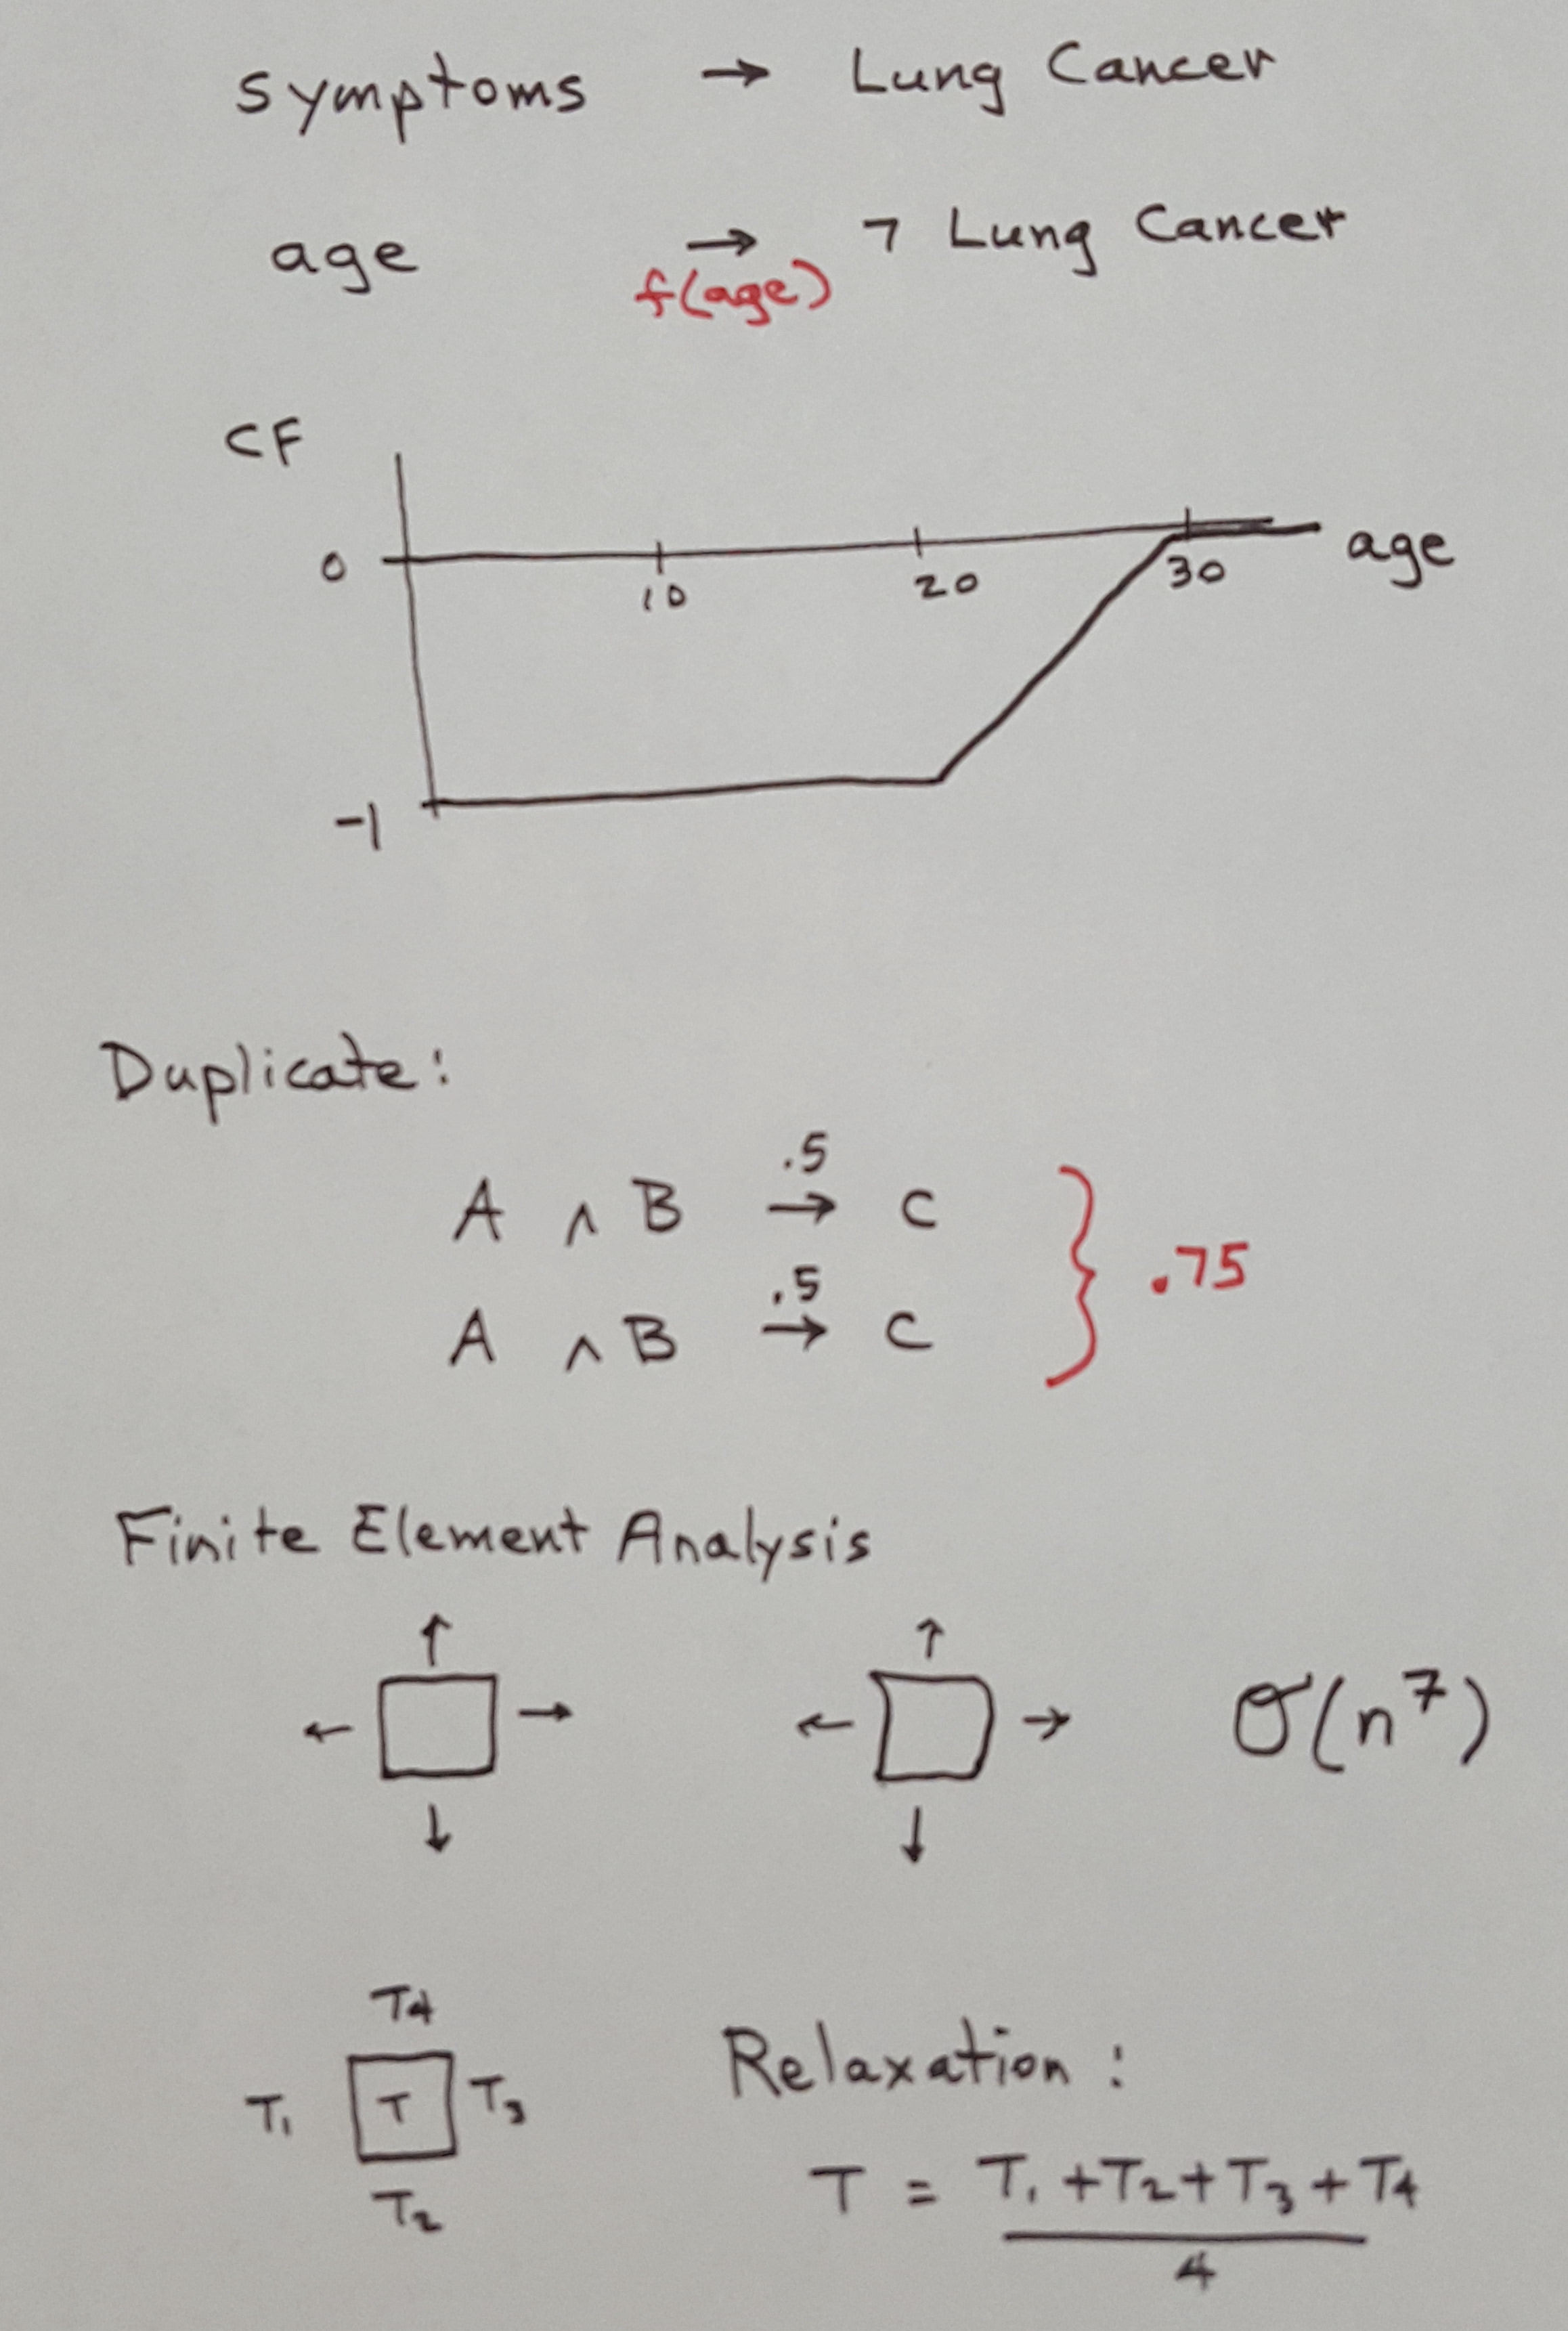 symptoms → Lung Cancer
age → ¬ Lung Cancer
f(age)
CF
0 10 20 30 age
-1
Duplicate:
A ∧ B .5 → C
A ∧ B .5 → C
} .75
Finite Element Analysis
O(n⁷)
T4
T₁ T T₃
T₂
Relaxation :
T = T₁ + T₂ + T₃ + T₄
4